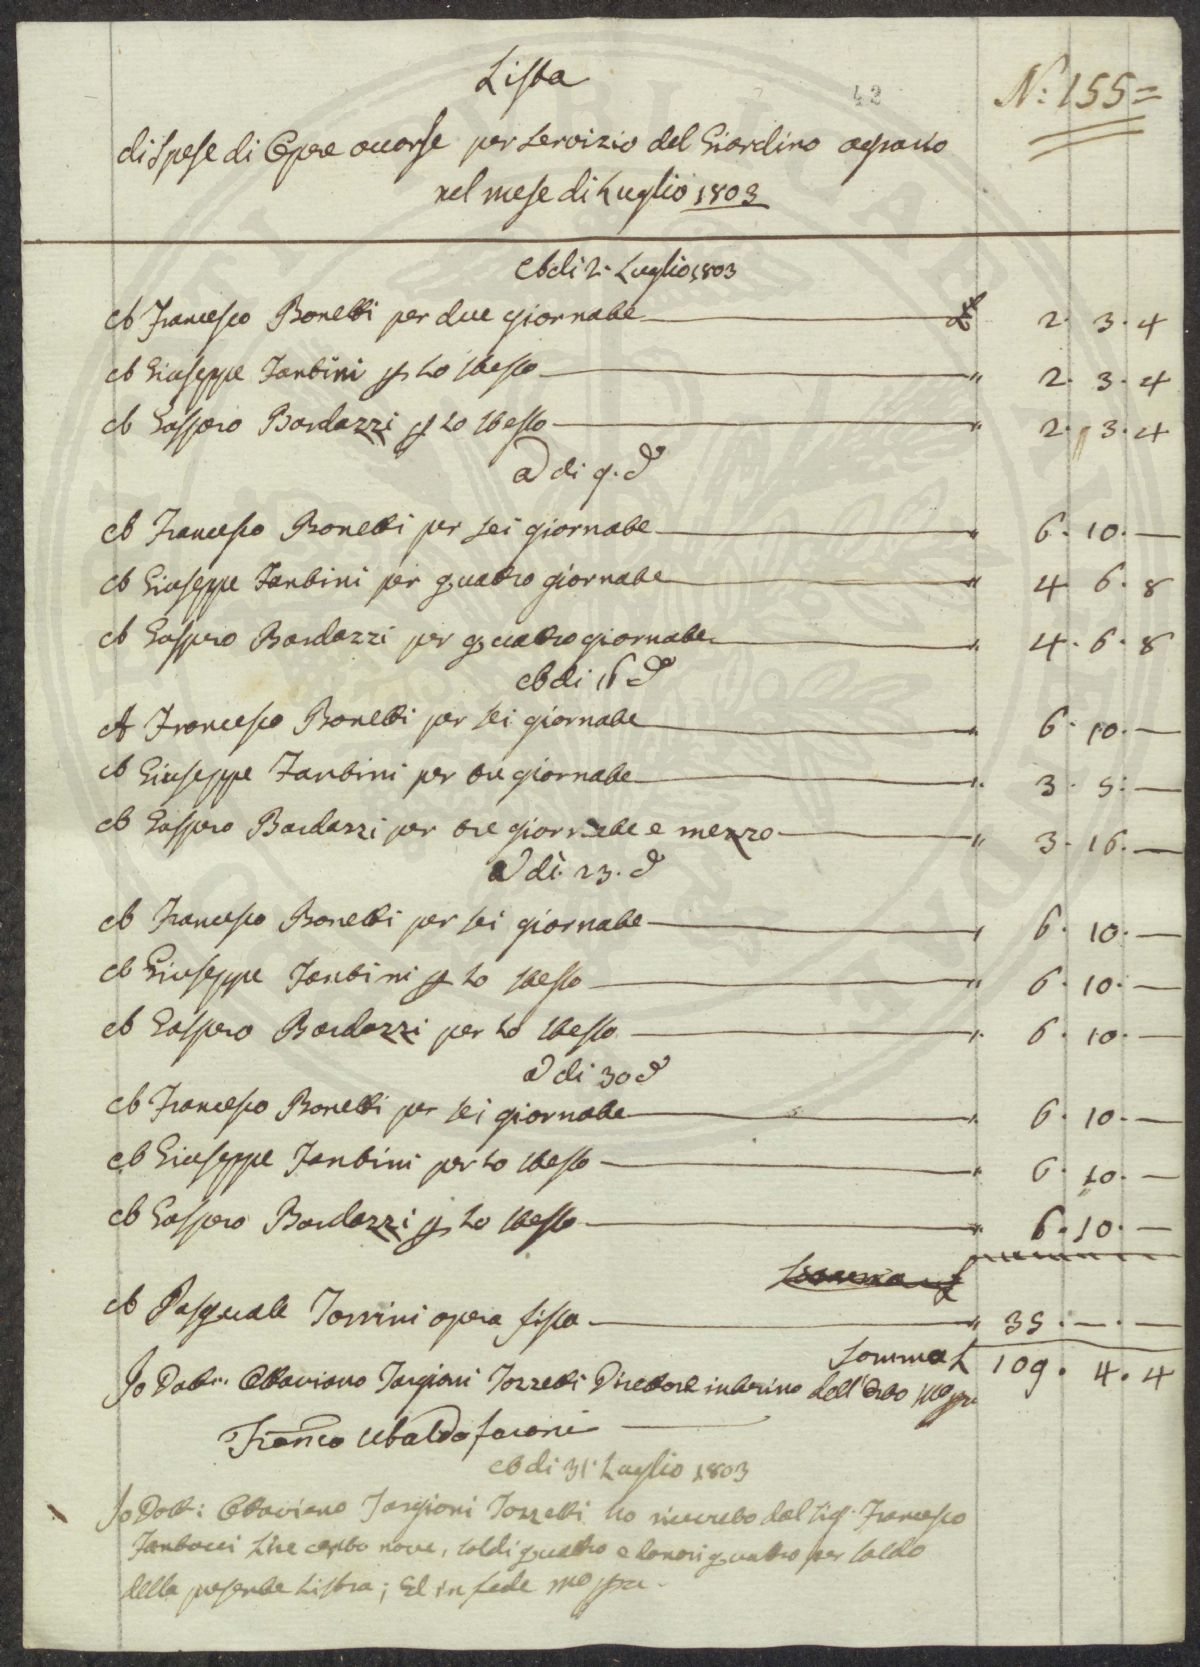 Lista
42
N: 155 =
di Spese di Opere occorse per servizio del Giardino agrario
nel mese di Luglio 1803
A di 2. Luglio 1803
A Francesco Bonetti per due giornate £ 2. 3. 4
A Giuseppe Fantini p lo stesso " 2. 3. 4
A Gaspero Bardazzi p lo stesso " 2. 3. 4
A di 9. do
A Francesco Bonetti per sei giornate " 6. 10. —
A Giuseppe Fantini per quattro giornate " 4. 6. 8
A Gaspero Bardazzi per quattro giornate " 4. 6. 8
A di 16 do
A Francesco Bonetti per sei giornate " 6. 10. —
A Giuseppe Fantini per tre giornate " 3. 5. —
A Gaspero Bardazzi per tre giornate e mezzo " 3. 16. —
A di 23. do
A Francesco Bonetti per sei giornate " 6. 10. —
A Giuseppe Fantini p lo stesso " 6. 10. —
A Gaspero Bardazzi per lo stesso " 6. 10. —
A di 30 do
A Francesco Bonetti per sei giornate " 6. 10. —
A Giuseppe Fantini per lo stesso " 6. 10. —
A Gaspero Bardazzi p lo stesso " 6. 10. —
A Pasquale Torrini opera fissa " 35. — . —
Somma £ 109. 4. 4
Io Dott: Ottaviano Targioni Tozzetti Direttore interino dell'Orto mo ppa
Franco Ubaldo
A di 31. Luglio 1803
Io Dott: Ottaviano Targioni Tozzetti ho ricevuto dal Sig. Francesco
Lire cento nove, soldi quattro e denari quattro per saldo
della presente Listra; Ed in fede mo ppa.